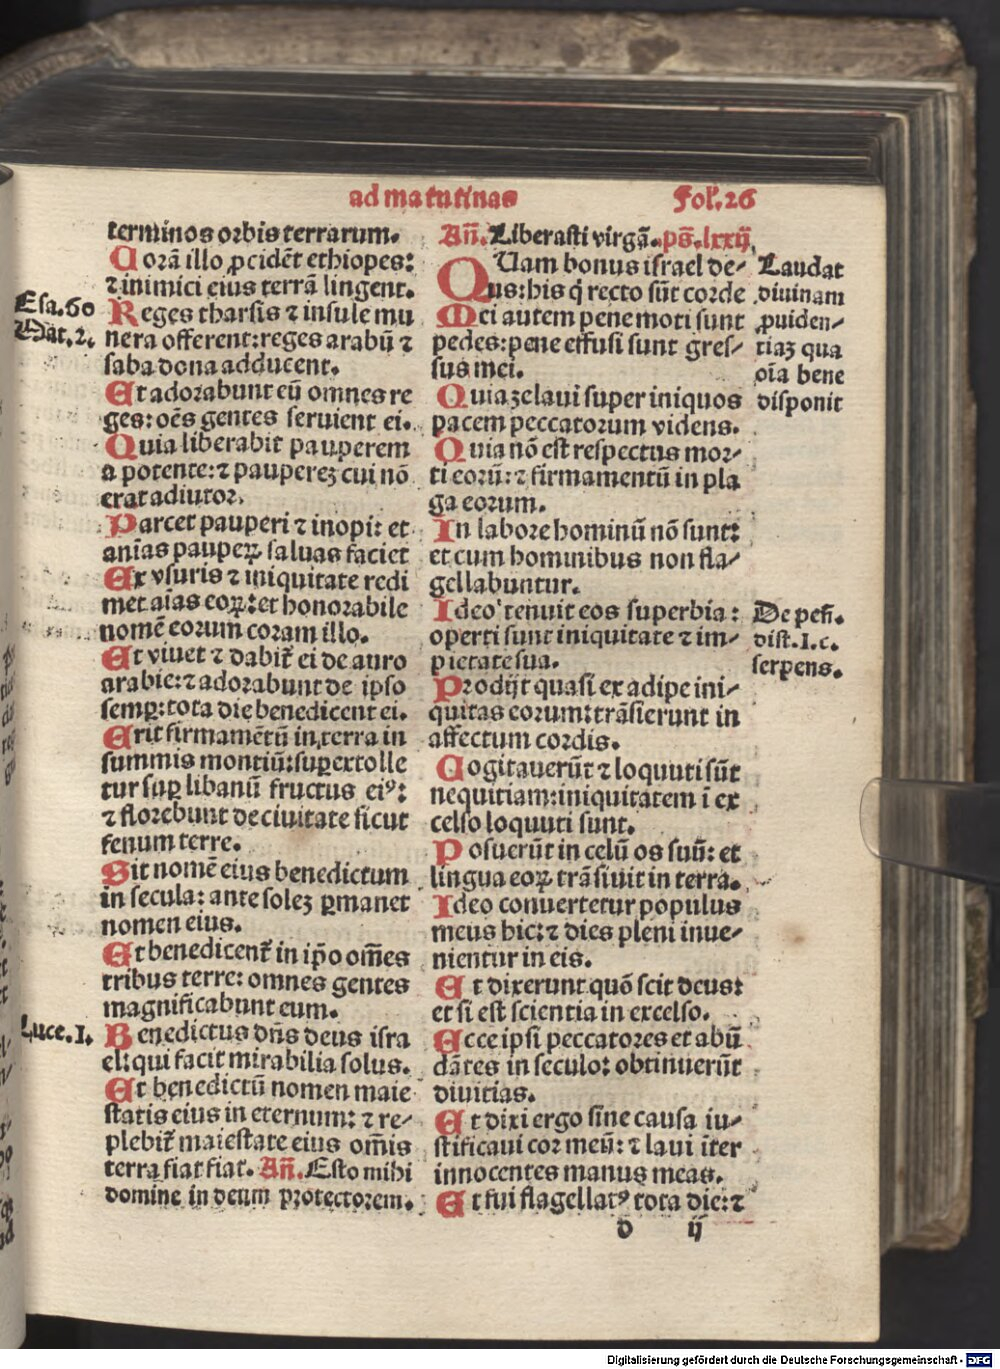 ad matutinas
Fol. 26
terminos orbis terrarum.
Corā illo ꝓcidēt ethiopes:
⁊ inimici eius terrā lingent.
Esa. 60
Mat. 2.
Reges tharsis ⁊ insule mu
nera offerent: reges arabū ⁊
saba dona adducent.
Et adorabunt eū omnes re
ges: oēs gentes seruient ei.
Quia liberabit pauperem
a potente: ⁊ paupereꝫ cui nō
erat adiutor.
Parcet pauperi ⁊ inopi: et
aīas pauperꝝ saluas faciet
Ex vsuris ⁊ iniquitate redi
met aīas eoꝝ: et honorabile
nomē eorum coram illo.
Et viuet ⁊ dabit̄ ei de auro
arabie: ⁊ adorabunt de ipso
semꝑ: tota die benedicent ei.
Erit firmamētū in terra in
summis montiū: suꝑextolle
tur suꝑ libanū fructus eiꝰ:
⁊ florebunt de ciuitate sicut
fenum terre.
Sit nomē eius benedictum
in secula: ante soleꝫ ꝑmanet
nomen eius.
Et benedicent̄ in ip̄o om̄es
tribus terre: omnes gentes
magnificabunt eum.
Luce. 1.
Benedictus dn̄s deus isra
el: qui facit mirabilia solus.
Et benedictū nomen maie
statis eius in eternum: ⁊ re-
plebit̄ maiestate eius om̄is
terra fiat fiat. Añ. Esto mihi
domine in deum protectorem.
Añ. Liberasti virgā. ps̄. lxxij.
QUam bonus israel de-
us: his q̄ recto sūt corde
Mei autem pene moti sunt
pedes: pene effusi sunt gres-
sus mei.
Laudat
diuinam
ꝓuiden-
tiaꝫ qua
oīa bene
disponit
Quia zelaui super iniquos
pacem peccatorum videns.
Quia nō est respectus mor-
ti eorū: ⁊ firmamentū in pla
ga eorum.
In labore hominū nō sunt:
et cum hominibus non fla-
gellabuntur.
Ideo tenuit eos superbia:
operti sunt iniquitate ⁊ im-
pietate sua.
De peñ.
dist. 1. c.
serpens.
Prodijt quasi ex adipe ini-
quitas eorum: trāsierunt in
affectum cordis.
Cogitauerūt ⁊ loquuti sūt
nequitiam: iniquitatem ī ex
celso loquuti sunt.
Posuerūt in celū os suū: et
lingua eoꝝ trāsiuit in terra.
Ideo conuertetur populus
meus hic: ⁊ dies pleni inue-
nientur in eis.
Et dixerunt quō scit deus:
et si est scientia in excelso.
Ecce ipsi peccatores et abū
dātes in seculo: obtinuerūt
diuitias.
Et dixi ergo sine causa iu-
stificaui cor meū: ⁊ laui īter
innocentes manus meas.
Et fui flagellatꝰ tota die: ⁊
d ij
Digitalisierung gefördert durch die Deutsche Forschungsgemeinschaft - DFG